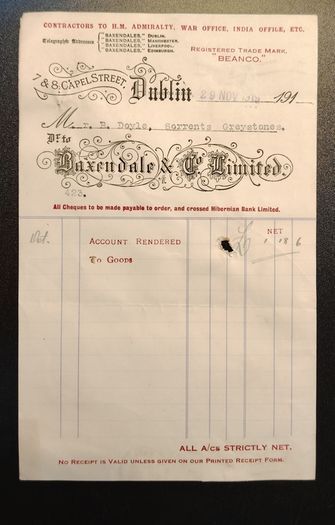 CONTRACTORS TO H.M. ADMIRALTY, WAR OFFICE, INDIA OFFICE, ETC.
Telegraphic Addresses
"BAXENDALES," DUBLIN.
"BAXENDALES," MANCHESTER.
"BAXENDALES," LIVERPOOL.
"BAXENDALES," EDINBURGH.
REGISTERED TRADE MARK.
"BEANCO."
7 & 8, CAPEL STREET,
Dublin 29 NOV 191
Mr. B. Doyle, Sorrento Greystones.
Dr. to
Baxendale & Co Limited.
423.
All Cheques to be made payable to order, and crossed Hibernian Bank Limited.
NET
ACCOUNT RENDERED £ 1 18 6
To GOODS
ALL A/Cs STRICTLY NET.
NO RECEIPT IS VALID UNLESS GIVEN ON OUR PRINTED RECEIPT FORM.